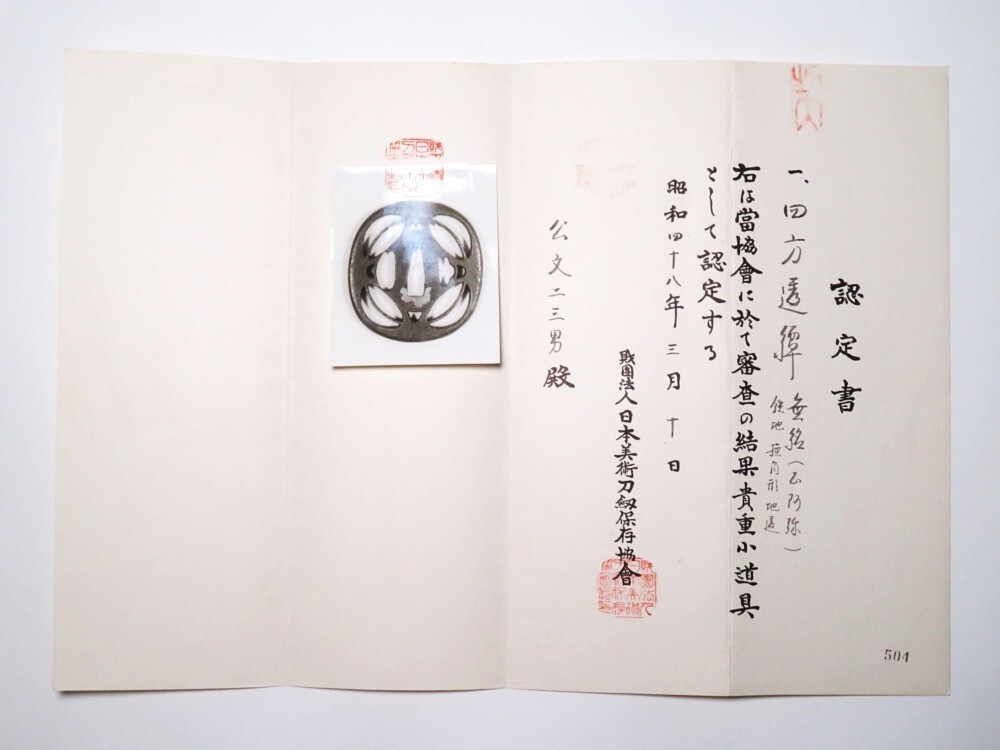 認定書
一、四方透鐔 無銘（正阿弥）
鉄地 撫角形 地透
右は當協會に於て審査の結果貴重小道具
として認定する
昭和四十八年三月十日
財團法人日本美術刀劍保存協會
公文二三男殿
504